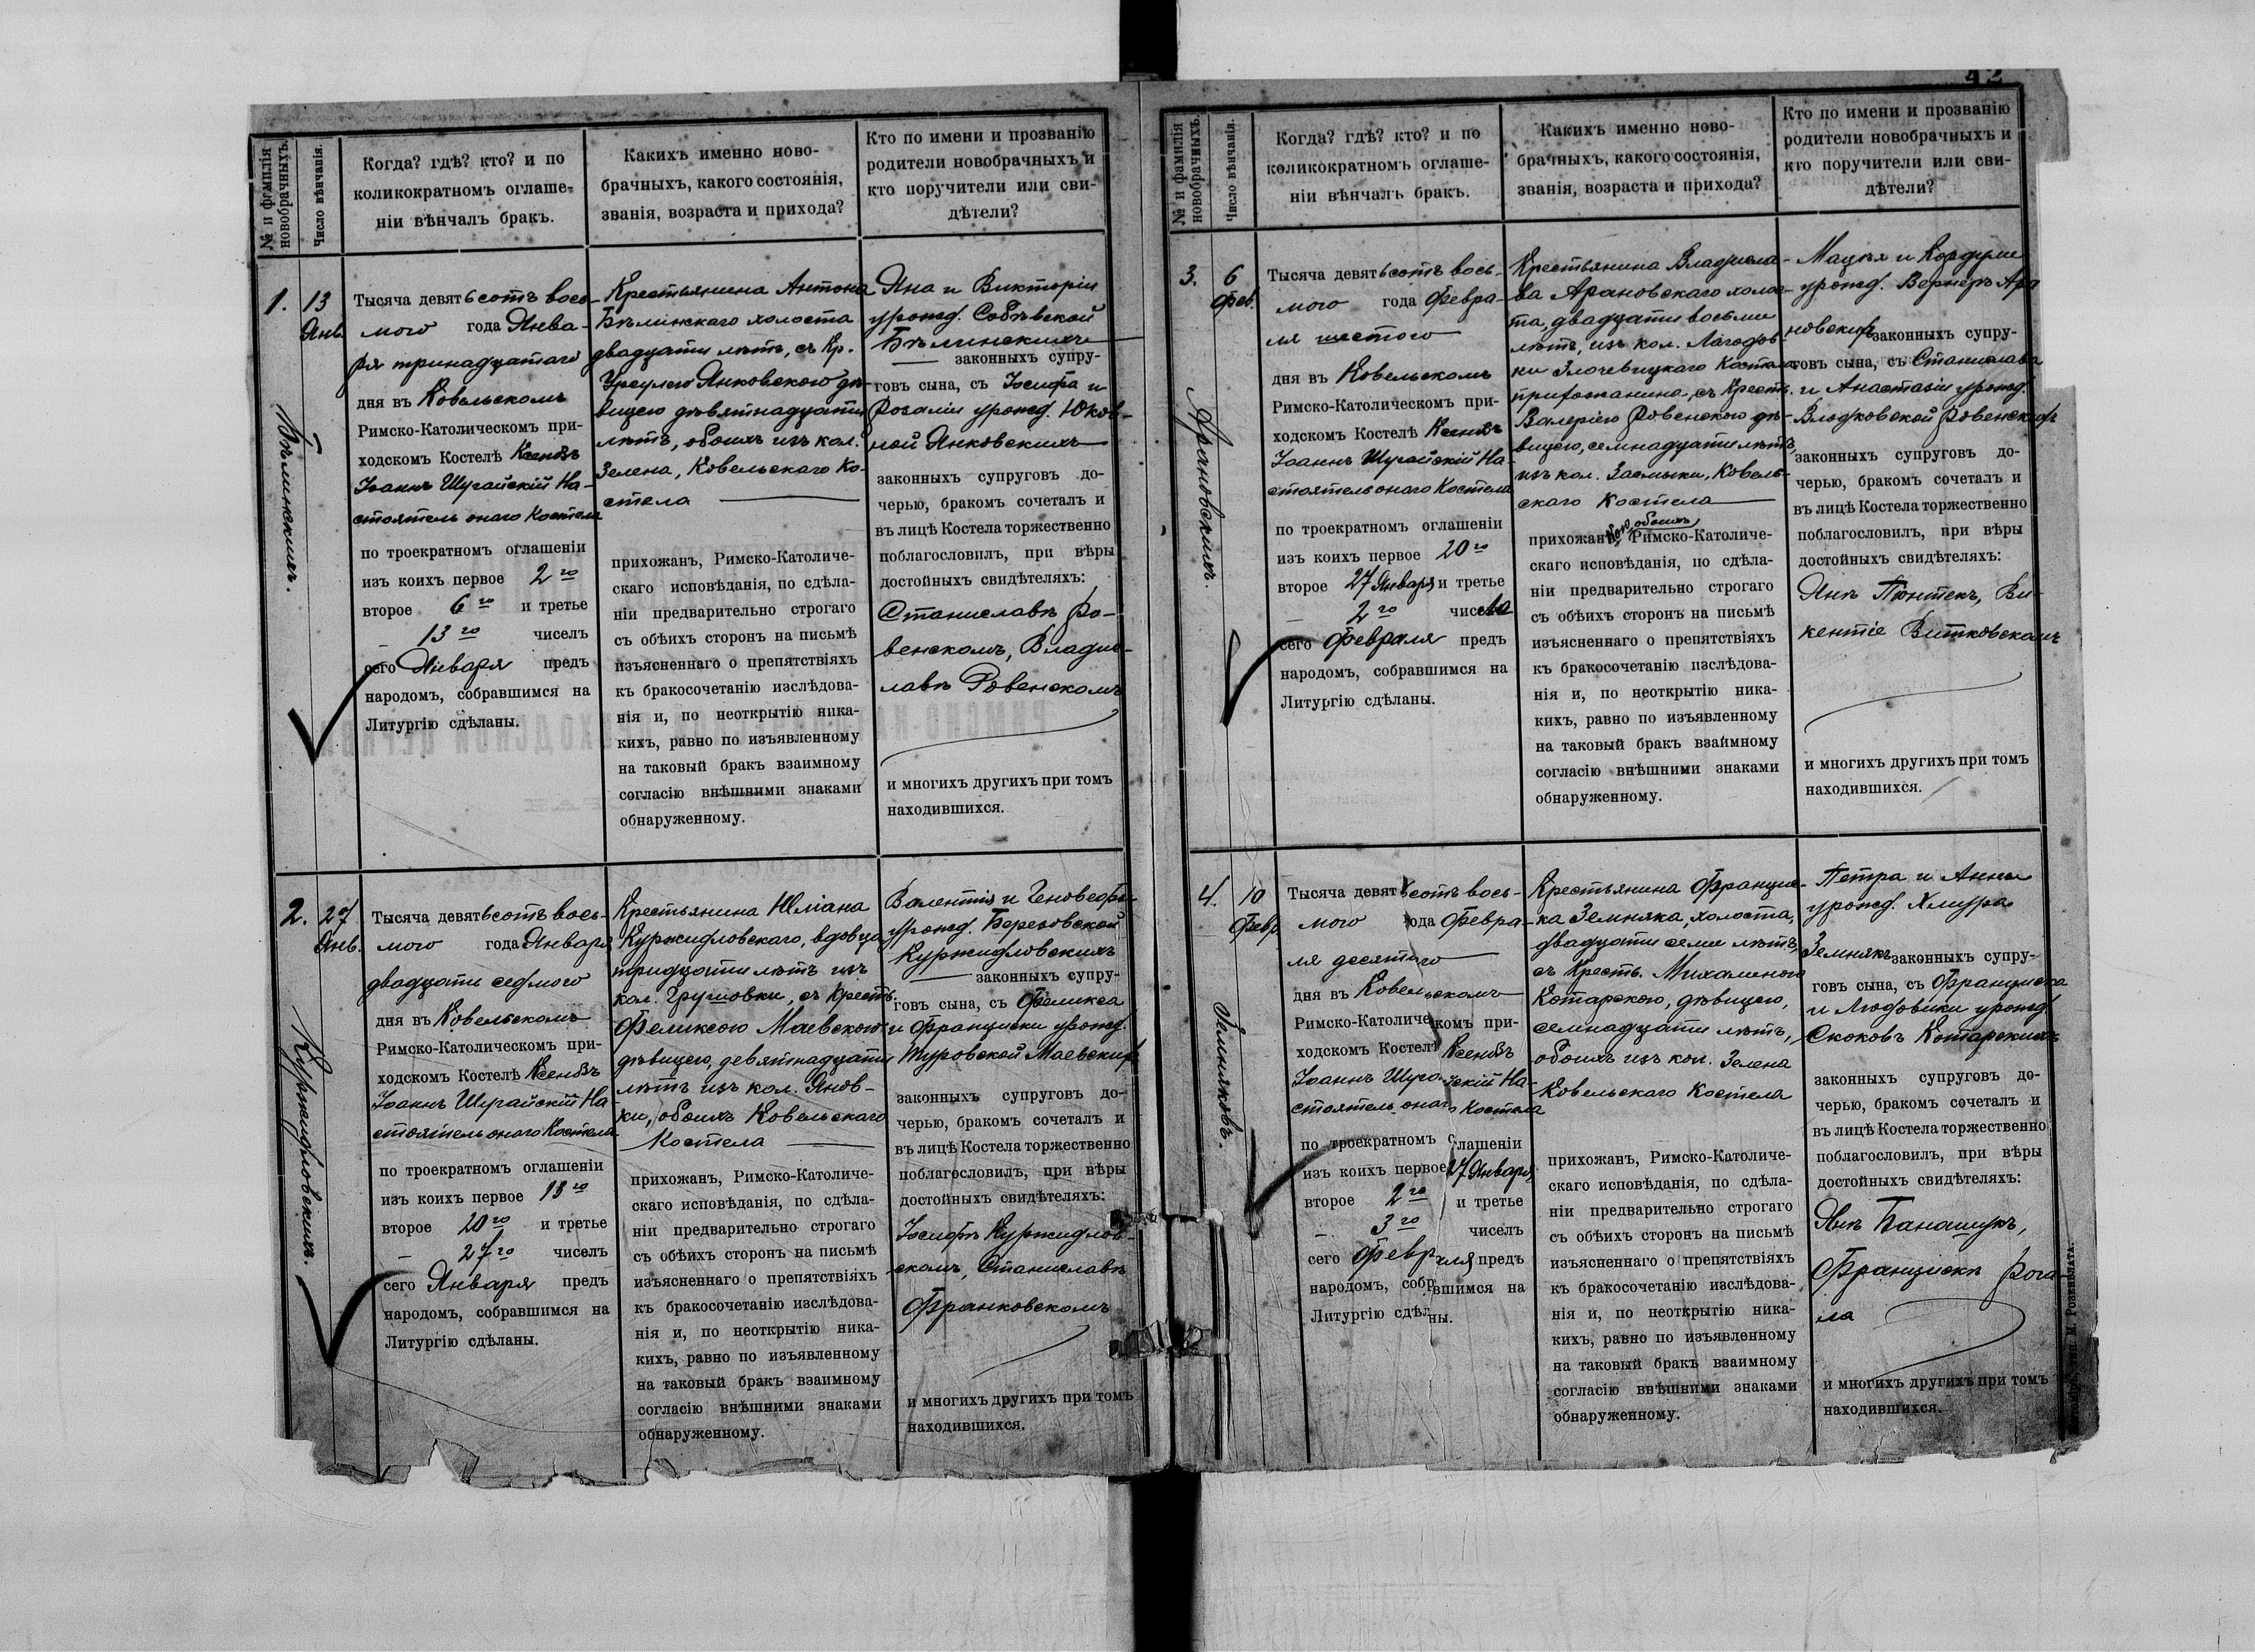 № и фамилія
новобрачныхъ.
Число вѣнчанія.
Когда? гдѣ? кто? и по
коликократномъ оглаше-
ніи вѣнчалъ бракъ.
Какихъ именно ново-
брачныхъ, какого состоянія,
званія, возраста и прихода?
Кто по имени и прозванію
родители новобрачныхъ и
кто поручители или сви-
дѣтели?
1.
13
Янв.
Бѣлинскихъ.
Тысяча девятьсотъ вось-
мого года Янва-
ря тринадцатаго
дня въ Ковельскомъ
Римско-Католическомъ при-
ходскомъ Костелѣ Ксендзъ
Іоаннъ Шугайскій На-
стоятель онаго Костела
по троекратномъ оглашеніи
изъ коихъ первое 2го
второе 6го и третье
13го чиселъ
сего Января предъ
народомъ, собравшимся на
Литургію сдѣланы.
Крестьянина Антона
Бѣлинскаго холоста
двадцати лѣтъ, съ Кр.
Урсулею Янковскою дѣ-
вицею девятнадцати
лѣтъ, обоихъ изъ кол.
Зелена, Ковельскаго Ко-
стела
прихожанъ, Римско-Католиче-
скаго исповѣданія, по сдѣла-
ніи предварительно строгаго
съ обѣихъ сторонъ на письмѣ
изъясненнаго о препятствіяхъ
къ бракосочетанію изслѣдова-
нія и, по неоткрытію ника-
кихъ, равно по изъявленному
на таковый бракъ взаимному
согласію внѣшними знаками
обнаруженному.
Яна и Викторіи
урожд. Собѣвской
Бѣлинскихъ
законныхъ супру-
говъ сына, съ Іосифа и
Розаліи урожд. Юков-
ной Янковскихъ
законныхъ супруговъ до-
черью, бракомъ сочеталъ и
въ лицѣ Костела торжественно
поблагословилъ, при вѣры
достойныхъ свидѣтеляхъ:
Станиславѣ Ро-
венскомъ, Владис-
лавѣ Ровенскомъ
и многихъ другихъ при томъ
находившихся.
2.
27
Янв.
Куржидловскихъ.
Тысяча девятьсотъ вось-
мого года Января
двадцать седмого
дня въ Ковельскомъ
Римско-Католическомъ при-
ходскомъ Костелѣ Ксендзъ
Іоаннъ Шугайскій На-
стоятель онаго Костела
по троекратномъ оглашеніи
изъ коихъ первое 13го
второе 20го и третье
27го чиселъ
сего Января предъ
народомъ, собравшимся на
Литургію сдѣланы.
Крестьянина Юліана
Куржидловскаго, вдовца
тридцати лѣтъ изъ
кол. Грушовки, съ Кресть.
Феликсою Маевскою
дѣвицею, девятнадцати
лѣтъ изъ кол. Янов-
ки, обоихъ Ковельскаго
Костела
прихожанъ, Римско-Католиче-
скаго исповѣданія, по сдѣла-
ніи предварительно строгаго
съ обѣихъ сторонъ на письмѣ
изъясненнаго о препятствіяхъ
къ бракосочетанію изслѣдова-
нія и, по неоткрытію ника-
кихъ, равно по изъявленному
на таковый бракъ взаимному
согласію внѣшними знаками
обнаруженному.
Валентія и Геновефы
урожд. Березовской
Куржидловскихъ
законныхъ супру-
говъ сына, съ Феликса
и Францишки урожд.
Туровской Маевскихъ
законныхъ супруговъ до-
черью, бракомъ сочеталъ и
въ лицѣ Костела торжественно
поблагословилъ, при вѣры
достойныхъ свидѣтеляхъ:
Іосифѣ Куржидлов-
скомъ, Станиславѣ
Франковскомъ
и многихъ другихъ при томъ
находившихся.
42
№ и фамилія
новобрачныхъ.
Число вѣнчанія.
Когда? гдѣ? кто? и по
коликократномъ оглаше-
ніи вѣнчалъ бракъ.
Какихъ именно ново-
брачныхъ, какого состоянія,
званія, возраста и прихода?
Кто по имени и прозванію
родители новобрачныхъ и
кто поручители или сви-
дѣтели?
3.
6
Фев.
Арановскихъ.
Тысяча девятьсотъ вось-
мого года Февра-
ля шестого
дня въ Ковельскомъ
Римско-Католическомъ при-
ходскомъ Костелѣ Ксендзъ
Іоаннъ Шугайскій На-
стоятель онаго Костела
по троекратномъ оглашеніи
изъ коихъ первое 20го
второе 27 Января и третье
2го числа
сего Февраля предъ
народомъ, собравшимся на
Литургію сдѣланы.
Крестьянина Владисла-
ва Арановскаго холос-
та, двадцати восьми
лѣтъ, изъ кол. Лагодов-
ки Злочевицкаго Костела
прихожанина, съ Кресть.
Валеріею Ровенскою дѣ-
вицею, семнадцати лѣтъ,
изъ кол. Засмыки, Ковель-
скаго Костела
прихожанкою обоихъ Римско-Католиче-
скаго исповѣданія, по сдѣла-
ніи предварительно строгаго
съ обѣихъ сторонъ на письмѣ
изъясненнаго о препятствіяхъ
къ бракосочетанію изслѣдова-
нія и, по неоткрытію ника-
кихъ, равно по изъявленному
на таковый бракъ взаимному
согласію внѣшними знаками
обнаруженному.
Мацѣя и Кордули
урожд. Вернеръ Ара
новскихъ законныхъ супру-
говъ сына, съ Станислава
и Анастазіи урожд.
Влодковской Ровенскихъ
законныхъ супруговъ до-
черью, бракомъ сочеталъ и
въ лицѣ Костела торжественно
поблагословилъ, при вѣры
достойныхъ свидѣтеляхъ:
Янѣ Піонтекъ, Ви-
кентіе Витковскомъ
и многихъ другихъ при томъ
находившихся.
4.
10
Февр.
Земняковъ.
Тысяча девятьсотъ вось-
мого года Февра-
ля десятого
дня въ Ковельскомъ
Римско-Католическомъ при-
ходскомъ Костелѣ Ксендзъ
Іоаннъ Шугайскій На-
стоятель онаго Костела
по троекратномъ оглашеніи
изъ коихъ первое 27 Января,
второе 2го и третье
3го чиселъ
сего Февраля предъ
народомъ, собравшимся на
Литургію сдѣланы.
Крестьянина Францис-
ка Земняка, холоста,
двадцати семи лѣтъ,
съ Кресть. Михалиною
Котарскою, дѣвицею,
семнадцати лѣтъ,
обоихъ изъ кол. Зелена
Ковельскаго Костела
прихожанъ, Римско-Католиче-
скаго исповѣданія, по сдѣла-
ніи предварительно строгаго
съ обѣихъ сторонъ на письмѣ
изъясненнаго о препятствіяхъ
къ бракосочетанію изслѣдова-
нія и, по неоткрытію ника-
кихъ, равно по изъявленному
на таковый бракъ взаимному
согласію внѣшними знаками
обнаруженному.
Петра и Анны
урожд. Хмура
Земнякъ законныхъ супру-
говъ сына, съ Франциска
и Людовики урожд.
Скоковъ Котарскихъ
законныхъ супруговъ до-
черью, бракомъ сочеталъ и
въ лицѣ Костела торжественно
поблагословилъ, при вѣры
достойныхъ свидѣтеляхъ:
Янѣ Банашукъ,
Францискѣ Рога
ла
и многихъ другихъ при томъ
находившихся.
тип. М. Розенблата.